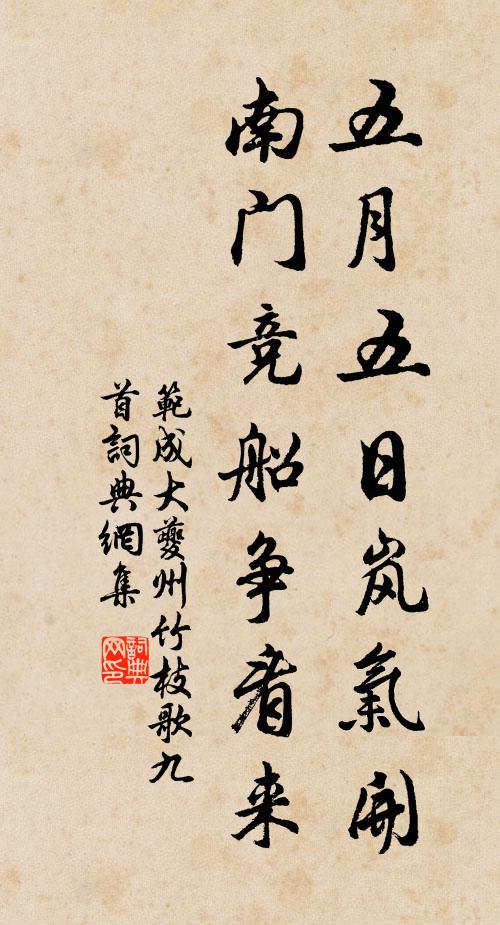 五月五日岚氣開
南门竞船争看来
範成大夔州竹枝歌九
首詞典網集
詞典网印